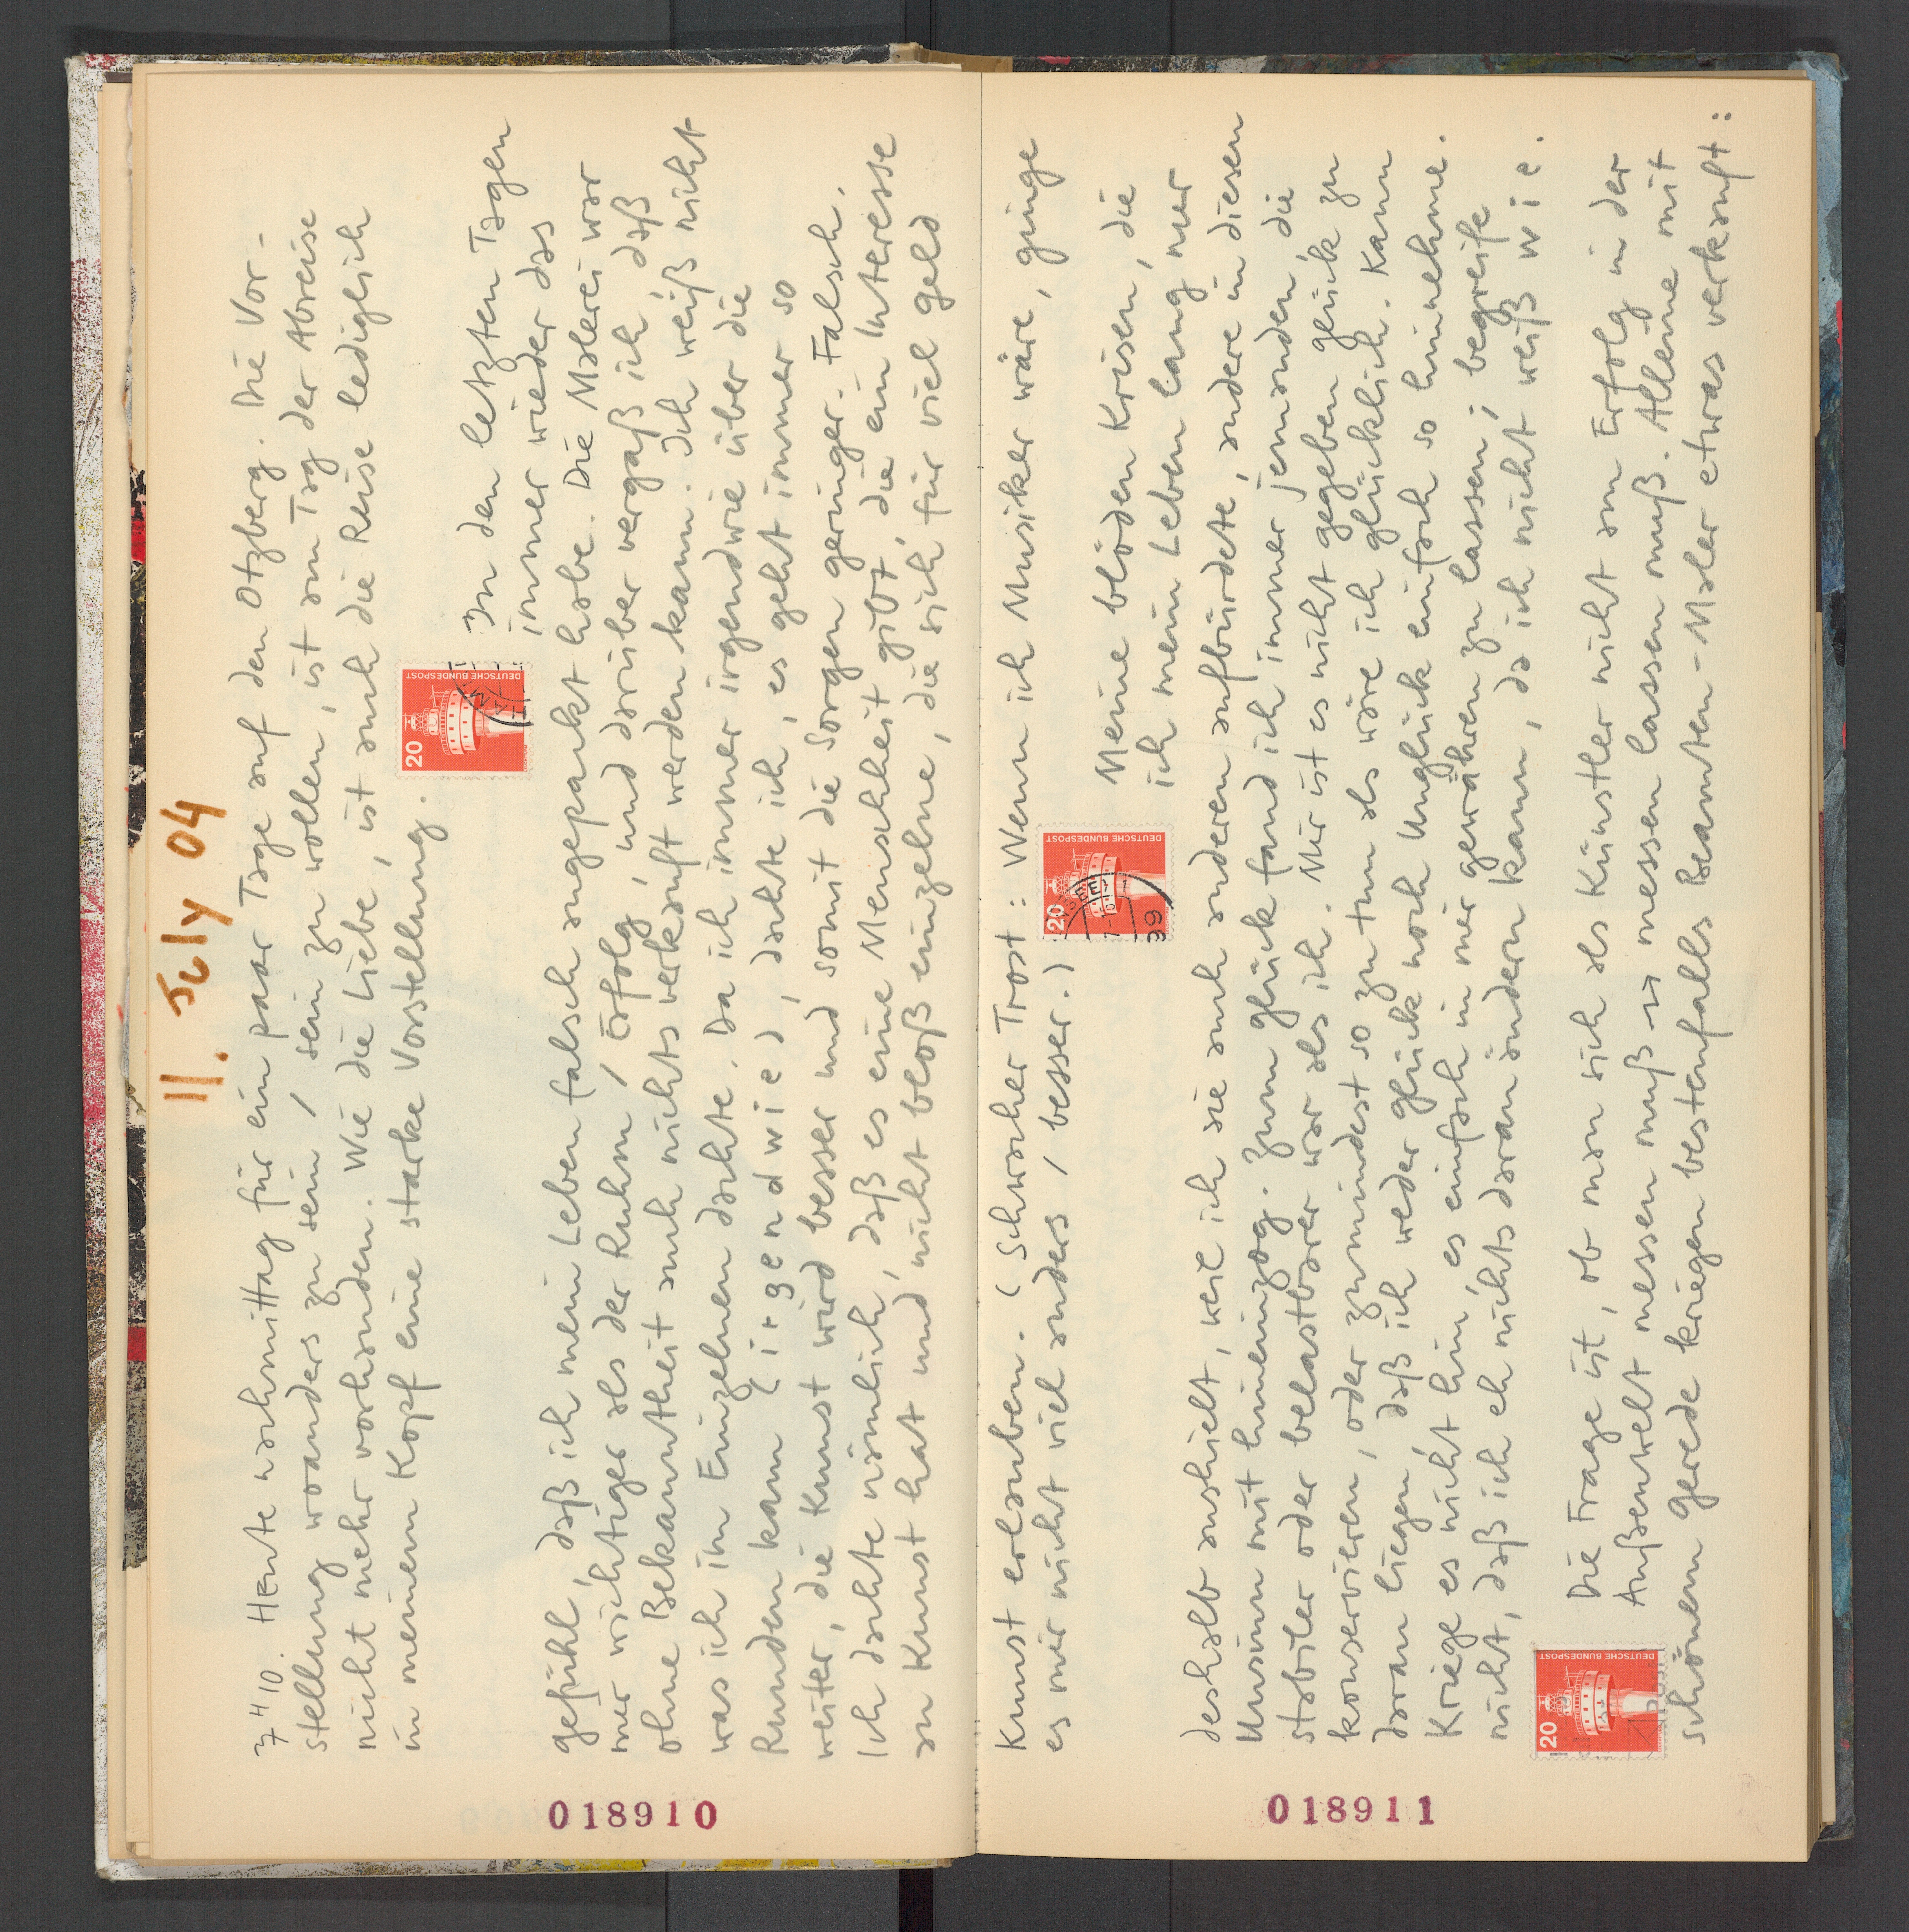 11. July 04
7410. Heute nachmittag für ein paar Tage auf den Otzberg. Die Vor-
stellung woanders zu sein, sein zu wollen, ist am Tag der Abreise
nicht mehr vorhanden. Wie die Liebe, ist auch die Reise lediglich
in meinem Kopf eine starke Vorstellung.
20
DEUTSCHE BUNDESPOST
In den letzten Tagen
immer wieder das
gefühl, daß ich mein Leben falsch angepackt habe. Die Malerei war
mir wichtiger als der Ruhm, Erfolg, und darüber vergaß ich, daß
ohne Bekanntheit auch nichts verkauft werden kann. Ich weiß nicht
was ich im Einzelnen dachte. Da ich immer irgendwie über die
Runden kam (irgendwie), dachte ich, es geht immer so
weiter, die Kunst wird besser und somit die Sorgen geringer. Falsch.
Ich dachte nämlich, daß es eine Menschheit gibt, die ein Interesse
an Kunst hat und nicht bloß einzelne, die sich für viel geld
018910
Kunst erlauben. (Schwacher Trost: Wenn ich Musiker wäre, ginge
es mir nicht viel anders / besser.)
20
DEUTSCHE BUNDESPOST
39
Meine blöden Krisen, die
ich mein Leben lang nur
deshalb aushielt, weil ich sie auch anderen aufbürdete, andere in diesen
Unsinn mit hineinzog. Zum glück fand ich immer jemanden, die
stabiler oder belastbarer war als ich. Mir ist es nicht gegeben glück zu
konservieren, oder zumindest so zu tun als wäre ich glücklich. Kann
daran liegen, daß ich weder glück noch Unglück einfach so hinnehme.
Kriege es nicht hin, es einfach in mir gewähren zu lassen; begreife
nicht, daß ich eh nichts daran ändern kann, da ich nicht weiß wie.
20
DEUTSCHE BUNDESPOST
Die Frage ist, ob man sich als Künstler nicht am Erfolg in der
Außenwelt messen muß u messen lassen muß. Alleine mit
schönem gerede kriegen bestenfalls Beamten-Maler etwas verkauft:
018911